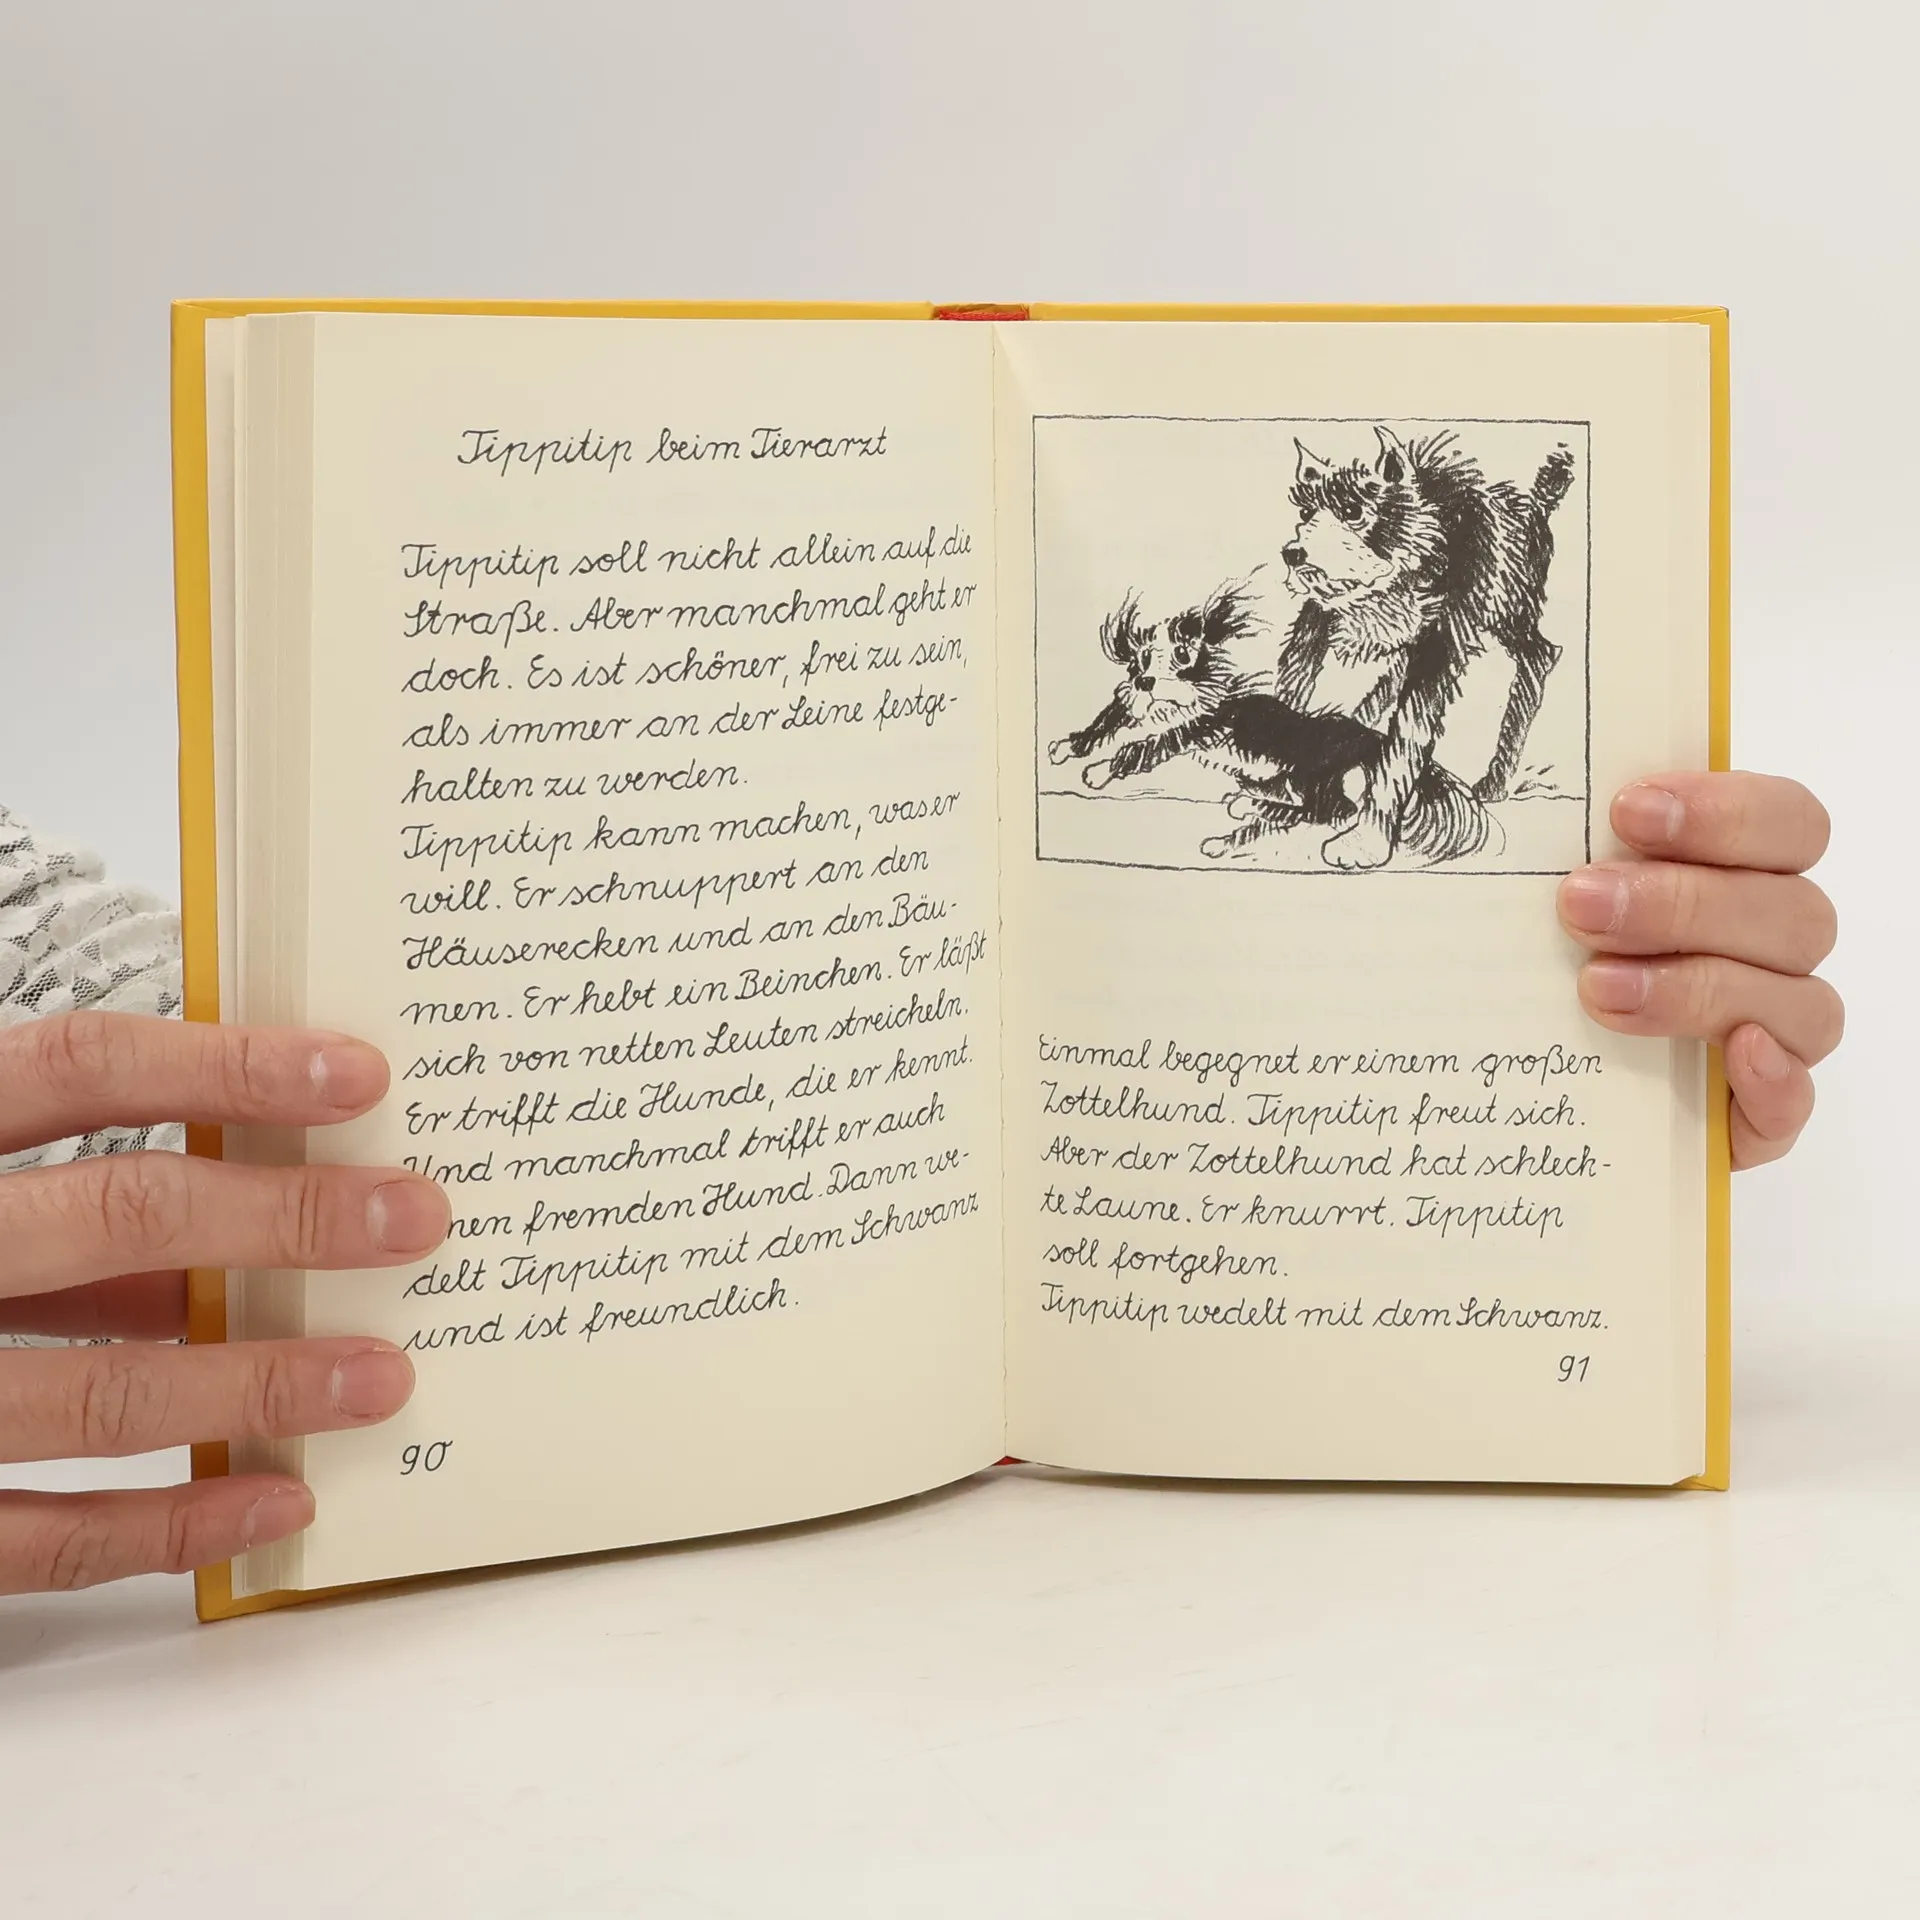 Tippitip beim Tierarzt
Tippitip soll nicht allein auf die
Straße. Aber manchmal geht er
doch. Es ist schöner, frei zu sein,
als immer an der Leine festge-
halten zu werden.
Tippitip kann machen, was er
will. Er schnuppert an den
Häuserecken und an den Bäu-
men. Er hebt ein Beinchen. Er läßt
sich von netten Leuten streicheln.
Er trifft die Hunde, die er kennt.
Und manchmal trifft er auch
fremden Hund. Dann we-
delt Tippitip mit dem Schwanz
und ist freundlich.
90
Einmal begegnet er einem großen
Zottelhund. Tippitip freut sich.
Aber der Zottelhund hat schlech-
te Laune. Er knurrt. Tippitip
soll fortgehen.
Tippitip wedelt mit dem Schwanz.
91